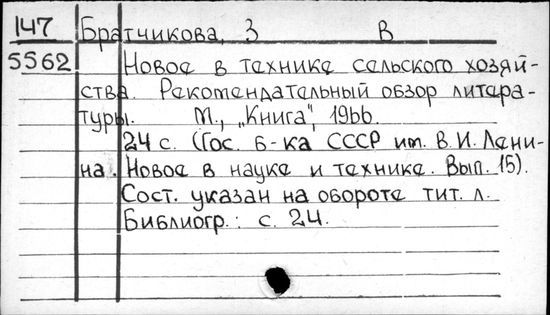 147 Братчикова, З В
5562 Новое в технике сельского хозяй-
ства. Рекомендательный обзор литера-
туры. М., „Книга", 1966.
24 с. (Гос. б-ка СССР им. В.И. Лени-
на. Новое в науке и технике. Вып. 15).
Сост. указан на обороте тит. л.
Библиогр.: с. 24.